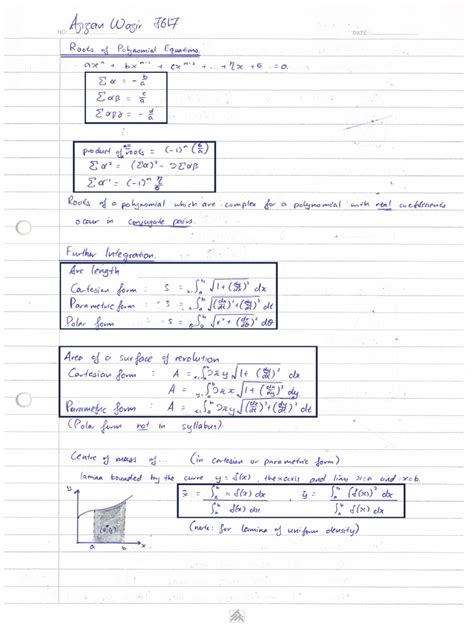 Azizan Wazir J617
NO:
DATE:
Roots of Polynomial Equations.
axⁿ + bxⁿ⁻¹ + cxⁿ⁻² + ... + ηx + δ = 0
Σα = -b/a
Σαβ = c/a
Σαβγ = -d/a
⋮
product of all roots = (-1)ⁿ (δ/a)
Σα² = (Σα)² - 2Σαβ
Σα⁻¹ = (-1)ⁿ
Roots of a polynomial which are complex for a polynomial with real coefficients
occur in conjugate pairs.
Further Integration.
Arc length
Cartesian form : s = ∫ₐᵇ √(1 + (dy/dx)²) dx
Parametric form : s = ∫ₐᵇ √((dx/dt)² + (dy/dt)²) dt
Polar form : s = ∫ √(r² + (dr/dθ)²) dθ
Area of a surface of revolution
Cartesian form : A = ∫ₐᵇ 2πy √(1 + (dy/dx)²) dx
A = ∫ₐᵇ 2πx √(1 + (dx/dy)²) dy
Parametric form : A = ∫ₐᵇ 2πy √((dx/dt)² + (dy/dt)²) dt
(Polar form not in syllabus)
Centre of mass of... (in cartesian or parametric form)
lamina bounded by the curve y = f(x), the x axis and lines x=a and x=b.
x̄ = ∫ₐᵇ x f(x) dx / ∫ₐᵇ f(x) dx , ȳ = ∫ₐᵇ (f(x))² dx / ∫ₐᵇ f(x) dx
y
(x̄,ȳ)
a b x
(note: for lamina of uniform density)